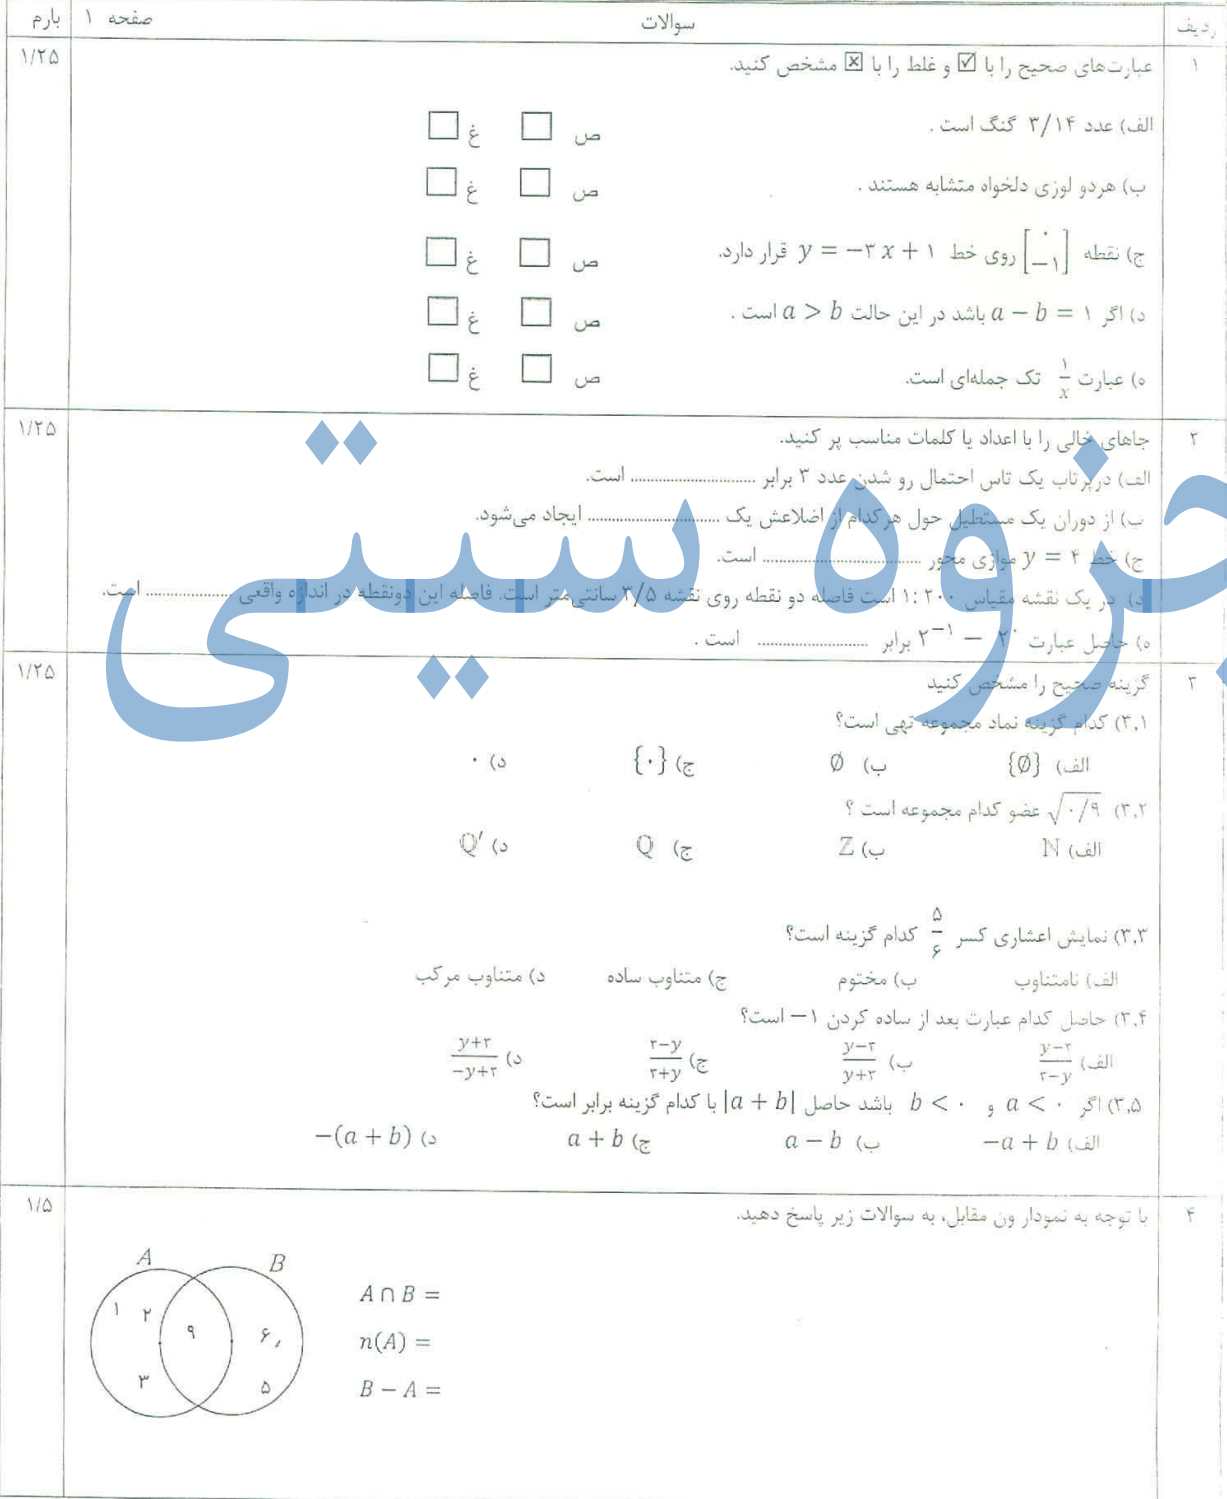 ردیف سوالات صفحه ۱ بارم
۱ عبارت‌های صحیح را با ☑ و غلط را با ☒ مشخص کنید. ۱/۲۵
الف) عدد ۳/۱۴ گنگ است . ص □ غ □
ب) هردو لوزی دلخواه متشابه هستند . ص □ غ □
ج) نقطه [۰ −۱] روی خط y = −۳x + ۱ قرار دارد. ص □ غ □
د) اگر a − b = ۱ باشد در این حالت a > b است . ص □ غ □
ه) عبارت ۱/x تک جمله‌ای است. ص □ غ □
۲ جاهای خالی را با اعداد یا کلمات مناسب پر کنید. ۱/۲۵
الف) درپرتاب یک تاس احتمال رو شدن عدد ۳ برابر .............................. است.
ب) از دوران یک مستطیل حول هرکدام از اضلاعش یک .............................. ایجاد می‌شود.
ج) خط y = ۴ موازی محور .............................. است.
د) در یک نقشه مقیاس ۱:۲۰۰ است فاصله دو نقطه روی نقشه ۳/۵ سانتی‌متر است. فاصله این دونقطه در اندازه واقعی .................... است.
ه) حاصل عبارت ۲⁰ − ۲⁻¹ برابر .......................... است .
۳ گزینه صحیح را مشخص کنید ۱/۲۵
۳,۱) کدام گزینه نماد مجموعه تهی است؟
الف) {∅} ب) ∅ ج) {۰} د) ۰
۳,۲) √۰/۹ عضو کدام مجموعه است ؟
الف) ℕ ب) ℤ ج) ℚ د) ℚ′
۳,۳) نمایش اعشاری کسر ۵/۶ کدام گزینه است؟
الف) نامتناوب ب) مختوم ج) متناوب ساده د) متناوب مرکب
۳,۴) حاصل کدام عبارت بعد از ساده کردن ۱− است؟
الف) (y−۲)/(۲−y) ب) (y−۲)/(y+۲) ج) (۲−y)/(۲+y) د) (y+۲)/(−y+۲)
۳,۵) اگر a < ۰ و b < ۰ باشد حاصل |a + b| با کدام گزینه برابر است؟
الف) −a + b ب) a − b ج) a + b د) −(a + b)
۴ با توجه به نمودار ون مقابل، به سوالات زیر پاسخ دهید. ۱/۵
A B
A ∩ B =
۱ ۲ ۹ ۶
n(A) =
۳ ۵
B − A =
جزوه سیتی